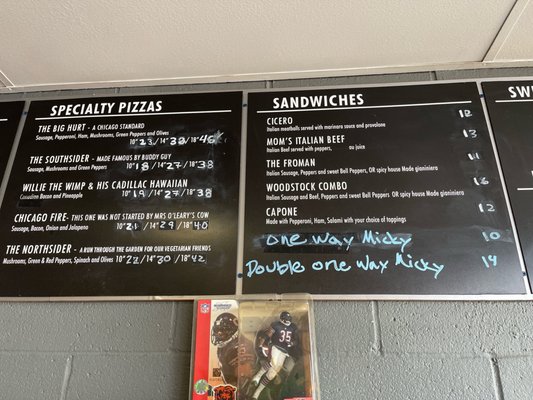 SPECIALTY PIZZAS
THE BIG HURT - A CHICAGO STANDARD
Sausage, Pepperoni, Ham, Mushrooms, Green Peppers and Olives
10" 23 / 14" 32 / 18" 46
THE SOUTHSIDER - MADE FAMOUS BY BUDDY GUY
Sausage, Mushrooms and Green Peppers 10" 18 / 14" 27 / 18" 38
WILLIE THE WIMP & HIS CADILLAC HAWAIIAN
Canadian Bacon and Pineapple 10" 19 / 14" 27 / 18" 38
CHICAGO FIRE - THIS ONE WAS NOT STARTED BY MRS O'LEARY'S COW
Sausage, Bacon, Onion and Jalapeno 10" 21 / 14" 29 / 18" 40
THE NORTHSIDER - A RUN THROUGH THE GARDEN FOR OUR VEGETARIAN FRIENDS
Mushrooms, Green & Red Peppers, Spinach and Olives 10" 22 / 14" 30 / 18" 42
SANDWICHES
CICERO 12
Italian meatballs served with marinara sauce and provolone
MOM'S ITALIAN BEEF 13
Italian Beef served with peppers, au juice
THE FROMAN 11
Italian Sausage, Peppers and sweet Bell Peppers OR spicy house Made gianiniera
WOODSTOCK COMBO 16
Italian Sausage and Beef, Peppers and sweet Bell Peppers OR spicy house Made gianiniera
CAPONE 12
Made with Pepperoni, Ham, Salami with your choice of toppings
one way Micky 10
Double one way Micky 14
SW
35